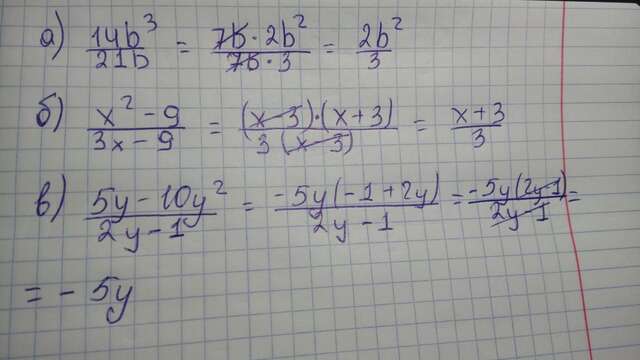 а) 14b³/21b = 7b · 2b²/7b · 3 = 2b²/3
б) x² - 9/3x - 9 = (x - 3) · (x + 3)/3 (x - 3) = x + 3/3
в) 5y - 10y²/2y - 1 = -5y(-1 + 2y)/2y - 1 = -5y(2y - 1)/2y - 1 =
= - 5y